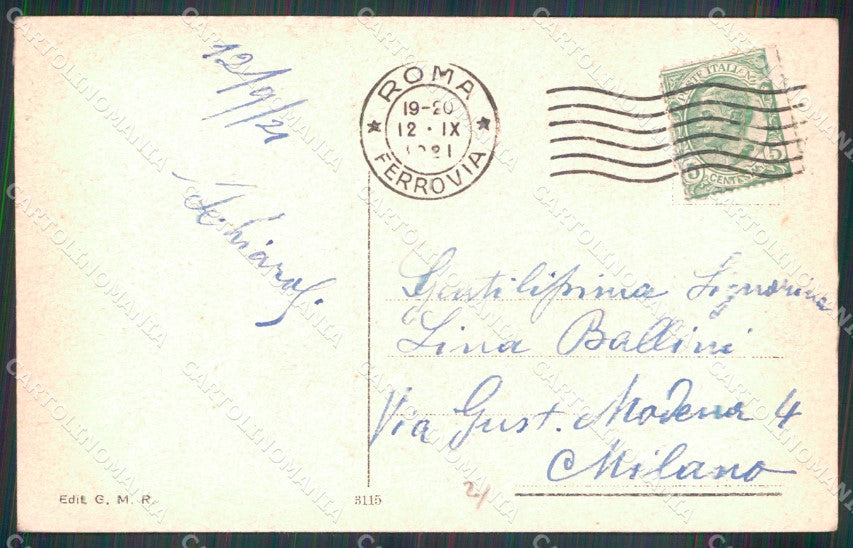 12/9/21
ROMA
19-20
12 · IX
1921
FERROVIA
POSTE ITALIANE
5 CENTESIMI 5
Gentilissima Signorina
Lina Ballini
Via Gust. Modena 4
Milano
Edit. G. M. R.
3115
21
CARTOLINOMANIA